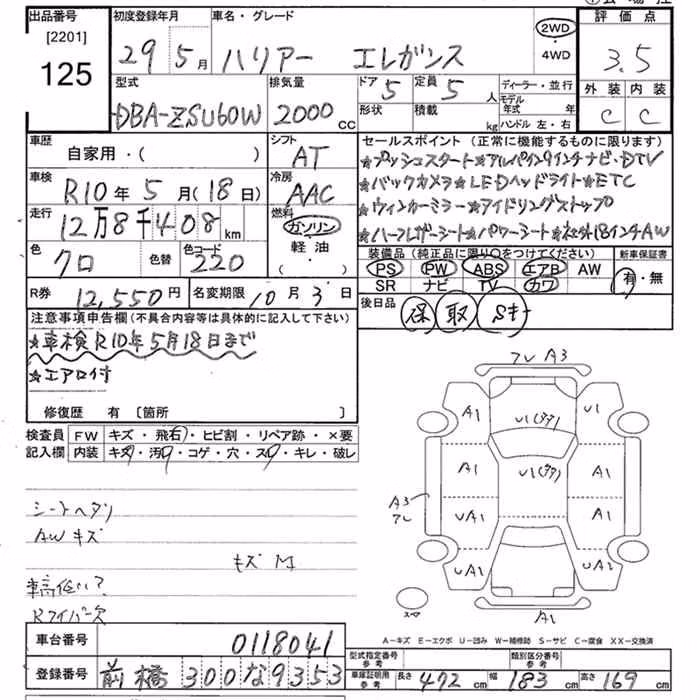 出品番号
[2201]
125
初度登録年月
29 5月
車名・グレード
ハリアー エレガンス
2WD
・
4WD
評価点
3.5
外装 内装
C C
型式
DBA-ZSU60W
排気量
2000cc
ドア
5
定員
5人
形状
積載
kg
ディーラー・並行
モデル年式 年
ハンドル 左・右
車歴
自家用・( )
シフト
AT
車検
R10年5月(18日)
冷房
AAC
走行
12万8千408km
燃料
ガソリン
軽油
( ・ )
色
クロ
色替
色コード
220
セールスポイント(正常に機能するものに限ります)
★プッシュスタート★アルパイン9インチナビ・DTV
★バックカメラ★LEDヘッドライト★ETC
★ウィンカーミラー★アイドリングストップ
★ハーフレザーシート★パワーシート★社外18インチAW
装備品(純正品に限り○をつけてください)
PS PW ABS エアB AW
SR ナビ TV カワ
新車保証書
有・無
R券
12,550円
名変期限
10月3日
後日品
保 取 Sキー
注意事項申告欄(不具合内容等は具体的に記入して下さい)
★車検R10年5月18日まで
★エアロ付
修復歴 有 [箇所 ]
検査員
記入欄
FW キズ・飛石・ヒビ割・リペア跡・×要
内装 キズ・汚れ・コゲ・穴・スレ・キレ・破レ
シートヘタリ
AWキズ
キズM
車高低い?
Rワイパー欠
ワレ A3
A1
U1(ダク)
U1
A1
U1(ダク)
A1
A3
ワレ
UA1
A1
UA1
UA1
A1
スペア
A-キズ E-エクボ U-凹み W-補修跡 S-サビ C-腐食 XX-交換済
車台番号
0118041
登録番号
前橋300な9353
型式指定番号
参考
類別区分番号
参考
車庫証明用
参考
長さ 472cm 幅 183cm 高さ 169cm